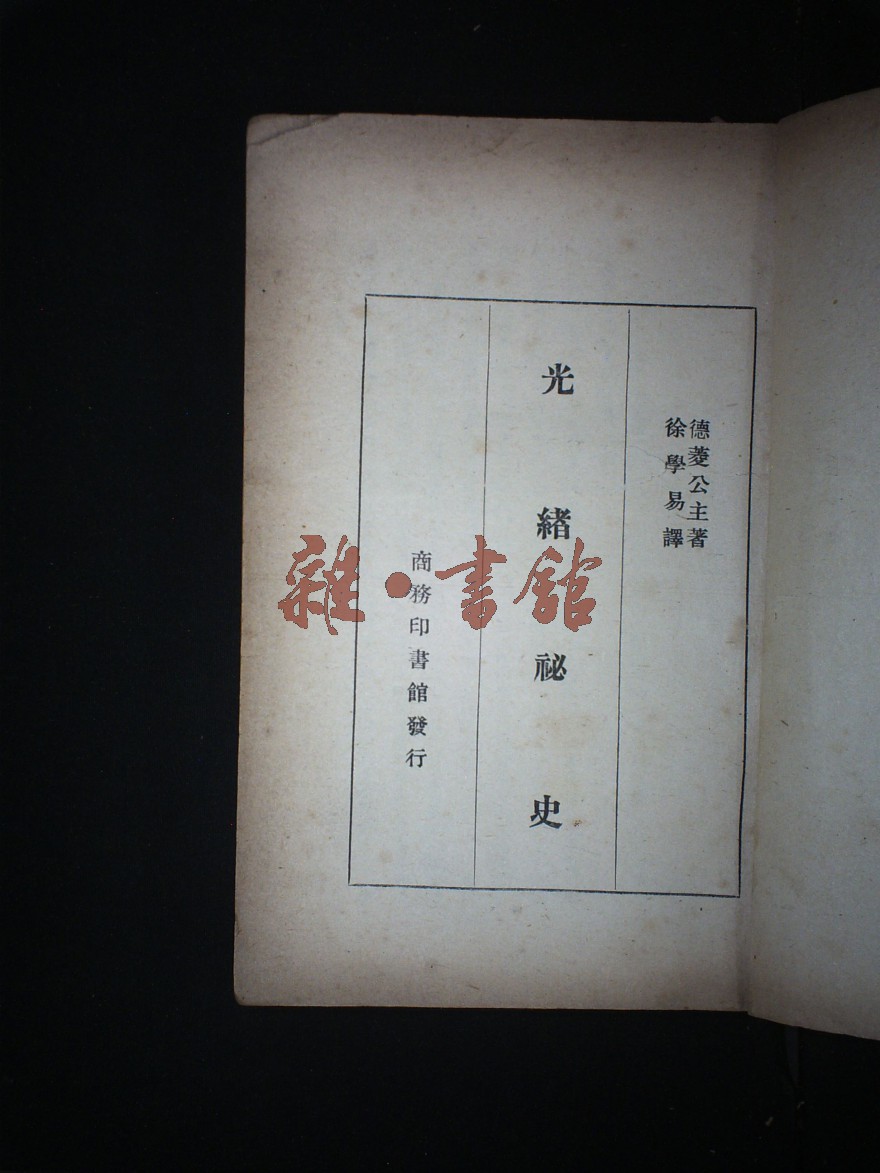 德菱公主著
徐學易譯
光緒祕史
商務印書館發行
雜·書館